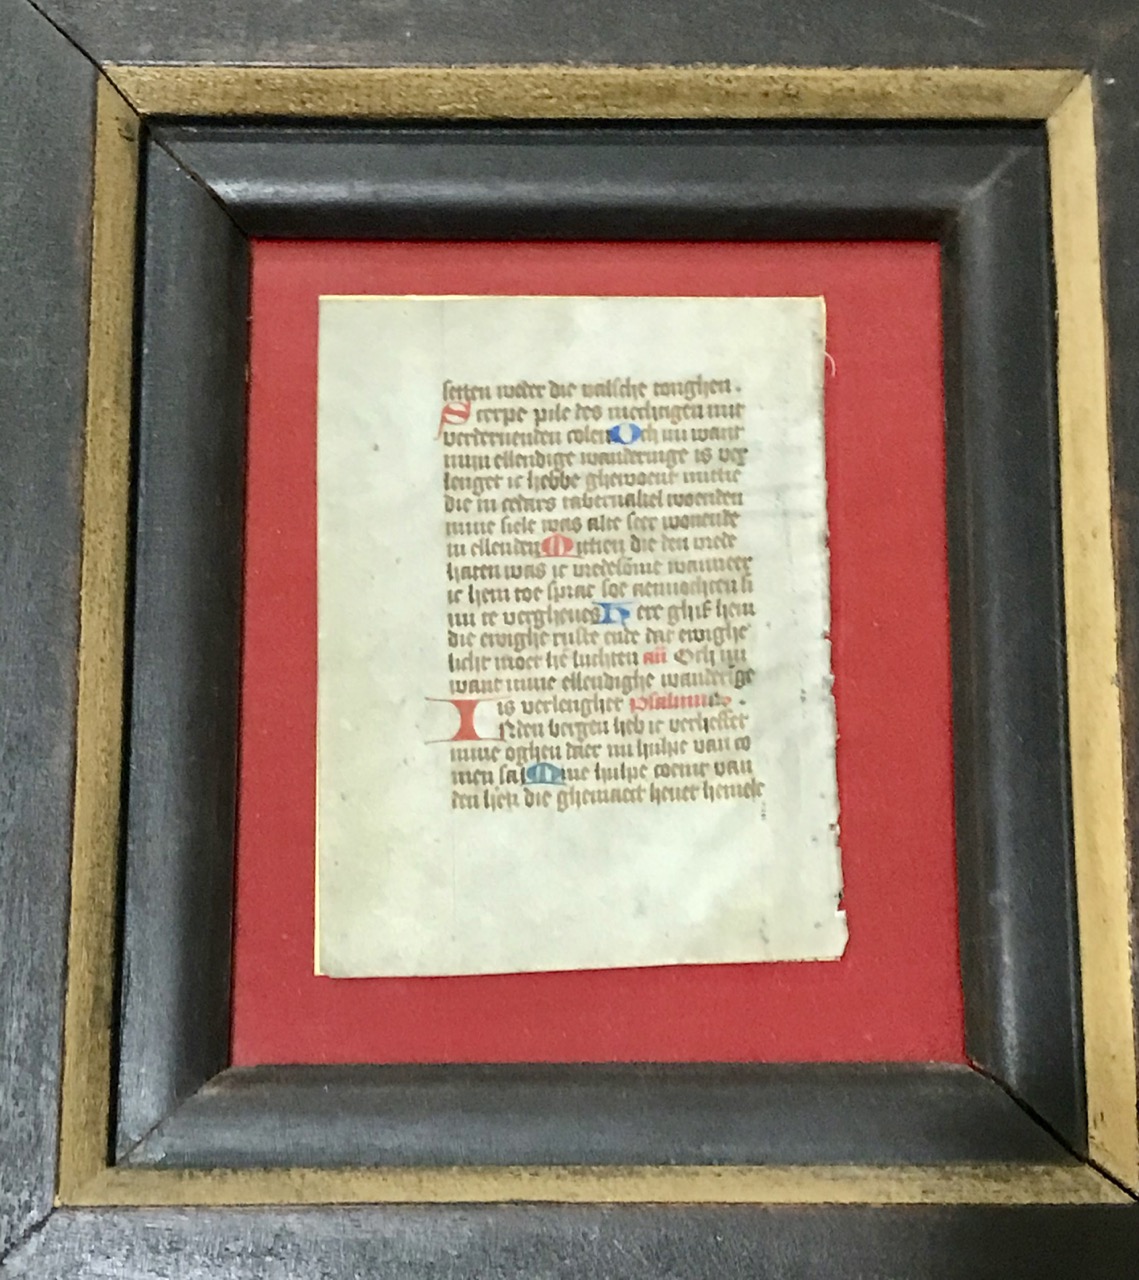 setten weder die valsche tonghen.
Scerpe pile des mechtigen mit
verderuenden colen Och mi want
mijn ellendige wanderinge is ver
lenget ic hebbe ghewoent mittie
die in cedars tabernakel woenden
mine siele was alte seer wonende
in ellenden Mitten die den vrede
haten was ic vredesā̄me wanneer
ic hem toe sprac soe aenvochten si
mi te vergheues Here ghif hem
die ewighe ruste ende dat ewighe
licht moet hē luchten añ Och mi
want mine ellendighe wanderīge
is verlenghet psalmus.
INden bergen heb ic verheuet
mine oghen daer mi hulpe van co
men sal Mine hulpe coemt van
den herē die ghemaect heuet hemele